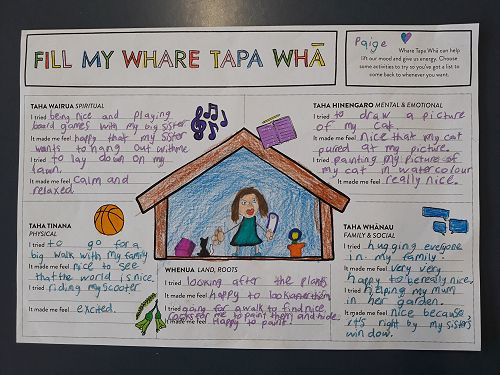 FILL MY WHARE TAPA WHĀ
Paige
Whare Tapa Whā can help
lift our mood and give us energy. Choose
some activities to try so you've got a list to
come back to whenever you want.
TAHA WAIRUA SPIRITUAL
I tried being nice and playing
board games with my big sister
It made me feel happy that my sister
wants to hang out with me
I tried to lay down on my
lawn.
It made me feel calm and
relaxed
TAHA HINENGARO MENTAL & EMOTIONAL
I tried to draw a picture
of my cat.
It made me feel nice that my cat
pured at my picture.
I tried painting my picture of
my cat in watercolour
It made me feel really nice.
TAHA TINANA
PHYSICAL
I tried to go for a
big walk with my family
It made me feel nice to see
that the world is nice.
I tried riding my scooter
It made me feel excited.
WHENUA LAND, ROOTS
I tried looking after the plants
It made me feel happy to look after them
I tried going for a walk to find nice
rocks for me to paint them and hide
It made me feel Happy to paint.
TAHA WHĀNAU
FAMILY & SOCIAL
I tried hugging everyone
in my family.
It made me feel very very
happy to be really nice,
I tried helping my mum
in her garden.
It made me feel nice because,
it's right by my sister's
window.